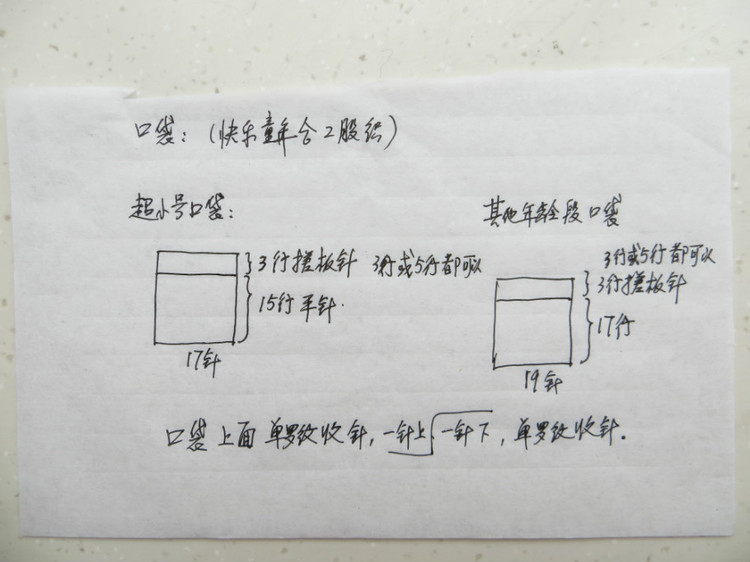 口袋：（快乐童年合2股织）
超小号口袋：
3行搓板针 3行或5行都可以
15行平针.
17针
其他年龄段口袋
3行或5行都可以
3行搓板针
17行
19针
口袋上面单罗纹收针，一针上、一针下，单罗纹收针.